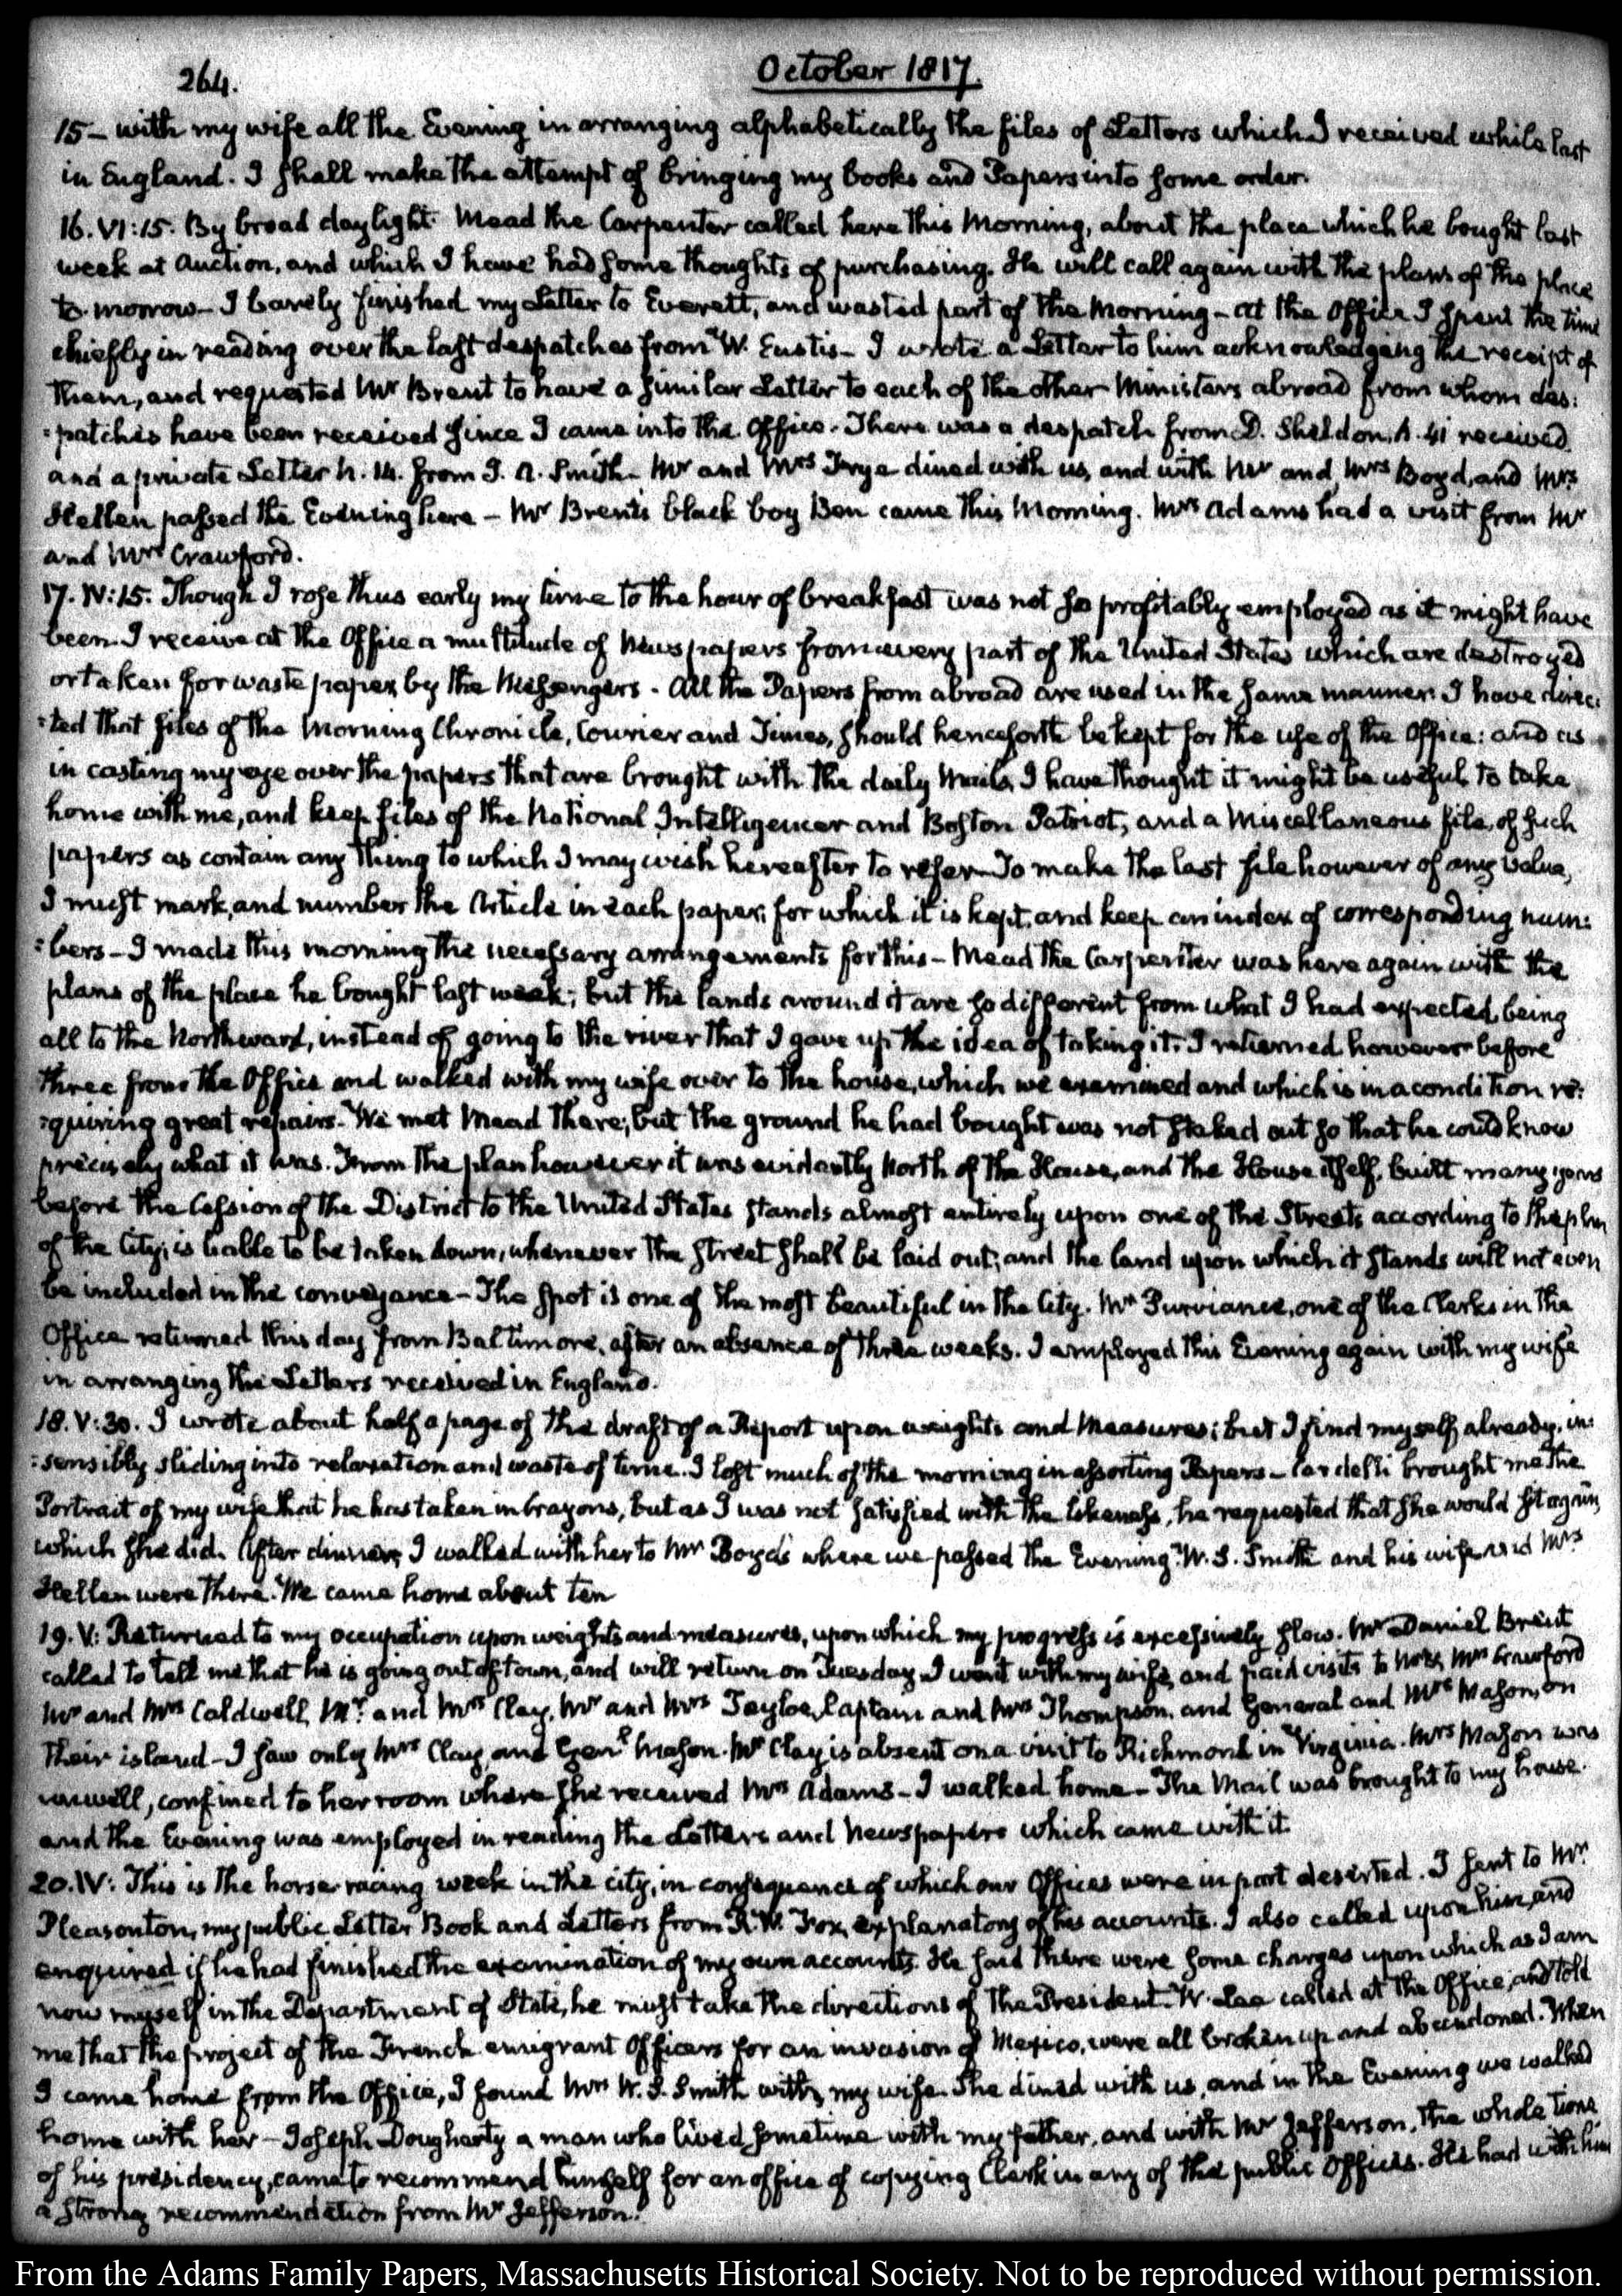 264.
October 1817.
15 – with my wife all the Evening in arranging alphabetically the files of Letters which I received while last
in England. I shall make the attempt of bringing my books and Papers into some order.
16. VI:15. By broad daylight. Mead the Carpenter called here this Morning, about the place which he bought last
week at Auction, and which I have had some thoughts of purchasing. He will call again with the plans of the place
to-morrow – I barely finished my Letter to Everett, and wasted part of the Morning – at the Office I spent the time
chiefly in reading over the last despatches from W. Eustis – I wrote a Letter to him acknowledging the receipt of
them, and requested Mr Brent to have a similar Letter to each of the other Ministers abroad from whom des:
:patches have been received since I came into the Office. There was a despatch from D. Sheldon, N. 41 received
and a private Letter N. 14. from J. A. Smith – Mr and Mrs Frye dined with us, and with Mr and Mrs Boyd, and Mrs
Hellen passed the Evening here – Mr Brent's black boy Ben came this Morning. Mrs Adams had a visit from Mr
and Mrs Crawford.
17. IV:15. Though I rose thus early my time to the hour of breakfast was not so profitably employed as it might have
been. I receive at the Office a multitude of Newspapers from every part of the United States which are destroyed
or taken for waste paper by the Messengers. All the Papers from abroad are used in the same manner. I have direc:
:ted that files of the Morning Chronicle, Courier and Times, should henceforth be kept for the use of the Office: and as
in casting my eye over the papers that are brought with the daily Mails, I have thought it might be useful to take
home with me, and keep files of the National Intelligencer and Boston Patriot, and a Miscellaneous file, of such
papers as contain any thing to which I may wish hereafter to refer. To make the last file however of any value,
I must mark, and number the Article in each paper, for which it is kept, and keep an index of corresponding num:
:bers – I made this morning the necessary arrangements for this – Mead the Carpenter was here again with the
plans of the place he bought last week; but the lands around it are so different from what I had expected, being
all to the Northward, instead of going to the river that I gave up the idea of taking it. I returned however before
three from the Office and walked with my wife over to the house, which we examined and which is in a condition re:
:quiring great repairs. We met Mead there; but the ground he had bought was not staked out so that he could know
precisely what it was. From the plan however it was evidently North of the House, and the House itself, built many years
before the Cession of the District to the United States stands almost entirely upon one of the Streets according to the plan
of the City; is liable to be taken down, whenever the street shall be laid out; and the land upon which it stands will not even
be included in the conveyance – The spot is one of the most beautiful in the City. Mr Purviance, one of the Clerks in the
Office returned this day from Baltimore, after an absence of three weeks. I employed this Evening again with my wife
in arranging the Letters received in England.
18. V:30. I wrote about half a page of the draft of a Report upon weights and Measures; but I find myself already, in:
:sensibly sliding into relaxation and waste of time. I lost much of the morning in assorting Papers – Cardelli brought me the
Portrait of my wife that he has taken in Crayons, but as I was not satisfied with the likeness, he requested that she would sit again,
which she did. After dinner, I walked with her to Mr Boyd's where we passed the Evening. W. S. Smith and his wife and Mrs
Hellen were there. We came home about ten
19. V: Returned to my occupation upon weights and measures, upon which my progress is excessively slow. Mr Daniel Brent
called to tell me that he is going out of town, and will return on Tuesday. I went with my wife, and paid visits to Mr & Mrs Crawford
Mr and Mrs Caldwell, Mr and Mrs Clay, Mr and Mrs Tayloe, Captain and Mrs Thompson, and General and Mrs Mason, on
their island – I saw only Mrs Clay, and Genl Mason. Mr Clay is absent on a visit to Richmond in Virginia. Mrs Mason was
unwell, confined to her room where she received Mrs Adams – I walked home – The Mail was brought to my house.
and the Evening was employed in reading the Letters and Newspapers which came with it.
20. IV: This is the horse racing week in the city, in consequence of which our Offices were in part deserted. I sent to Mr
Pleasonton, my public Letter Book and Letters from R. W. Fox, explanatory of his accounts. I also called upon him, and
enquired if he had finished the examination of my own accounts. He said there were some charges upon which as I am
now myself in the Department of State, he must take the directions of the President. W. Lee called at the Office, and told
me that the project of the French emigrant Officers for an invasion of Mexico, were all broken up and abandoned. When
I came home from the Office, I found Mrs W. S. Smith with my wife. She dined with us, and in the Evening we walked
home with her – Joseph Dougherty a man who lived sometime with my father, and with Mr Jefferson, the whole time
of his presidency, came to recommend himself for an office of copying Clerk in any of the public Offices. He had with him
a strong recommendation from Mr Jefferson.
From the Adams Family Papers, Massachusetts Historical Society. Not to be reproduced without permission.